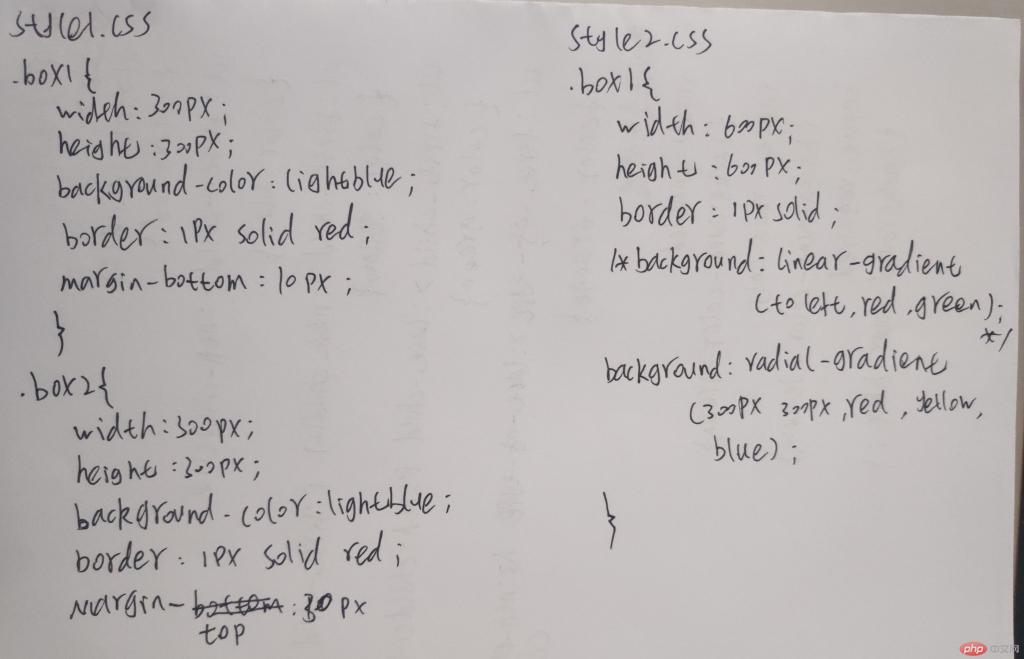 style1.css
.box1{
width:300px;
height:300px;
background-color:lightblue;
border:1px solid red;
margin-bottom:10px;
}
.box2{
width:300px;
height:300px;
background-color:lightblue;
border:1px solid red;
margin-bottom:30px
top
style2.css
.box1{
width:600px;
height:600px;
border:1px solid;
/*background:linear-gradient
(to left,red,green);
*/
background:radial-gradient
(300px 300px,red,yellow,
blue);
}
php中文网